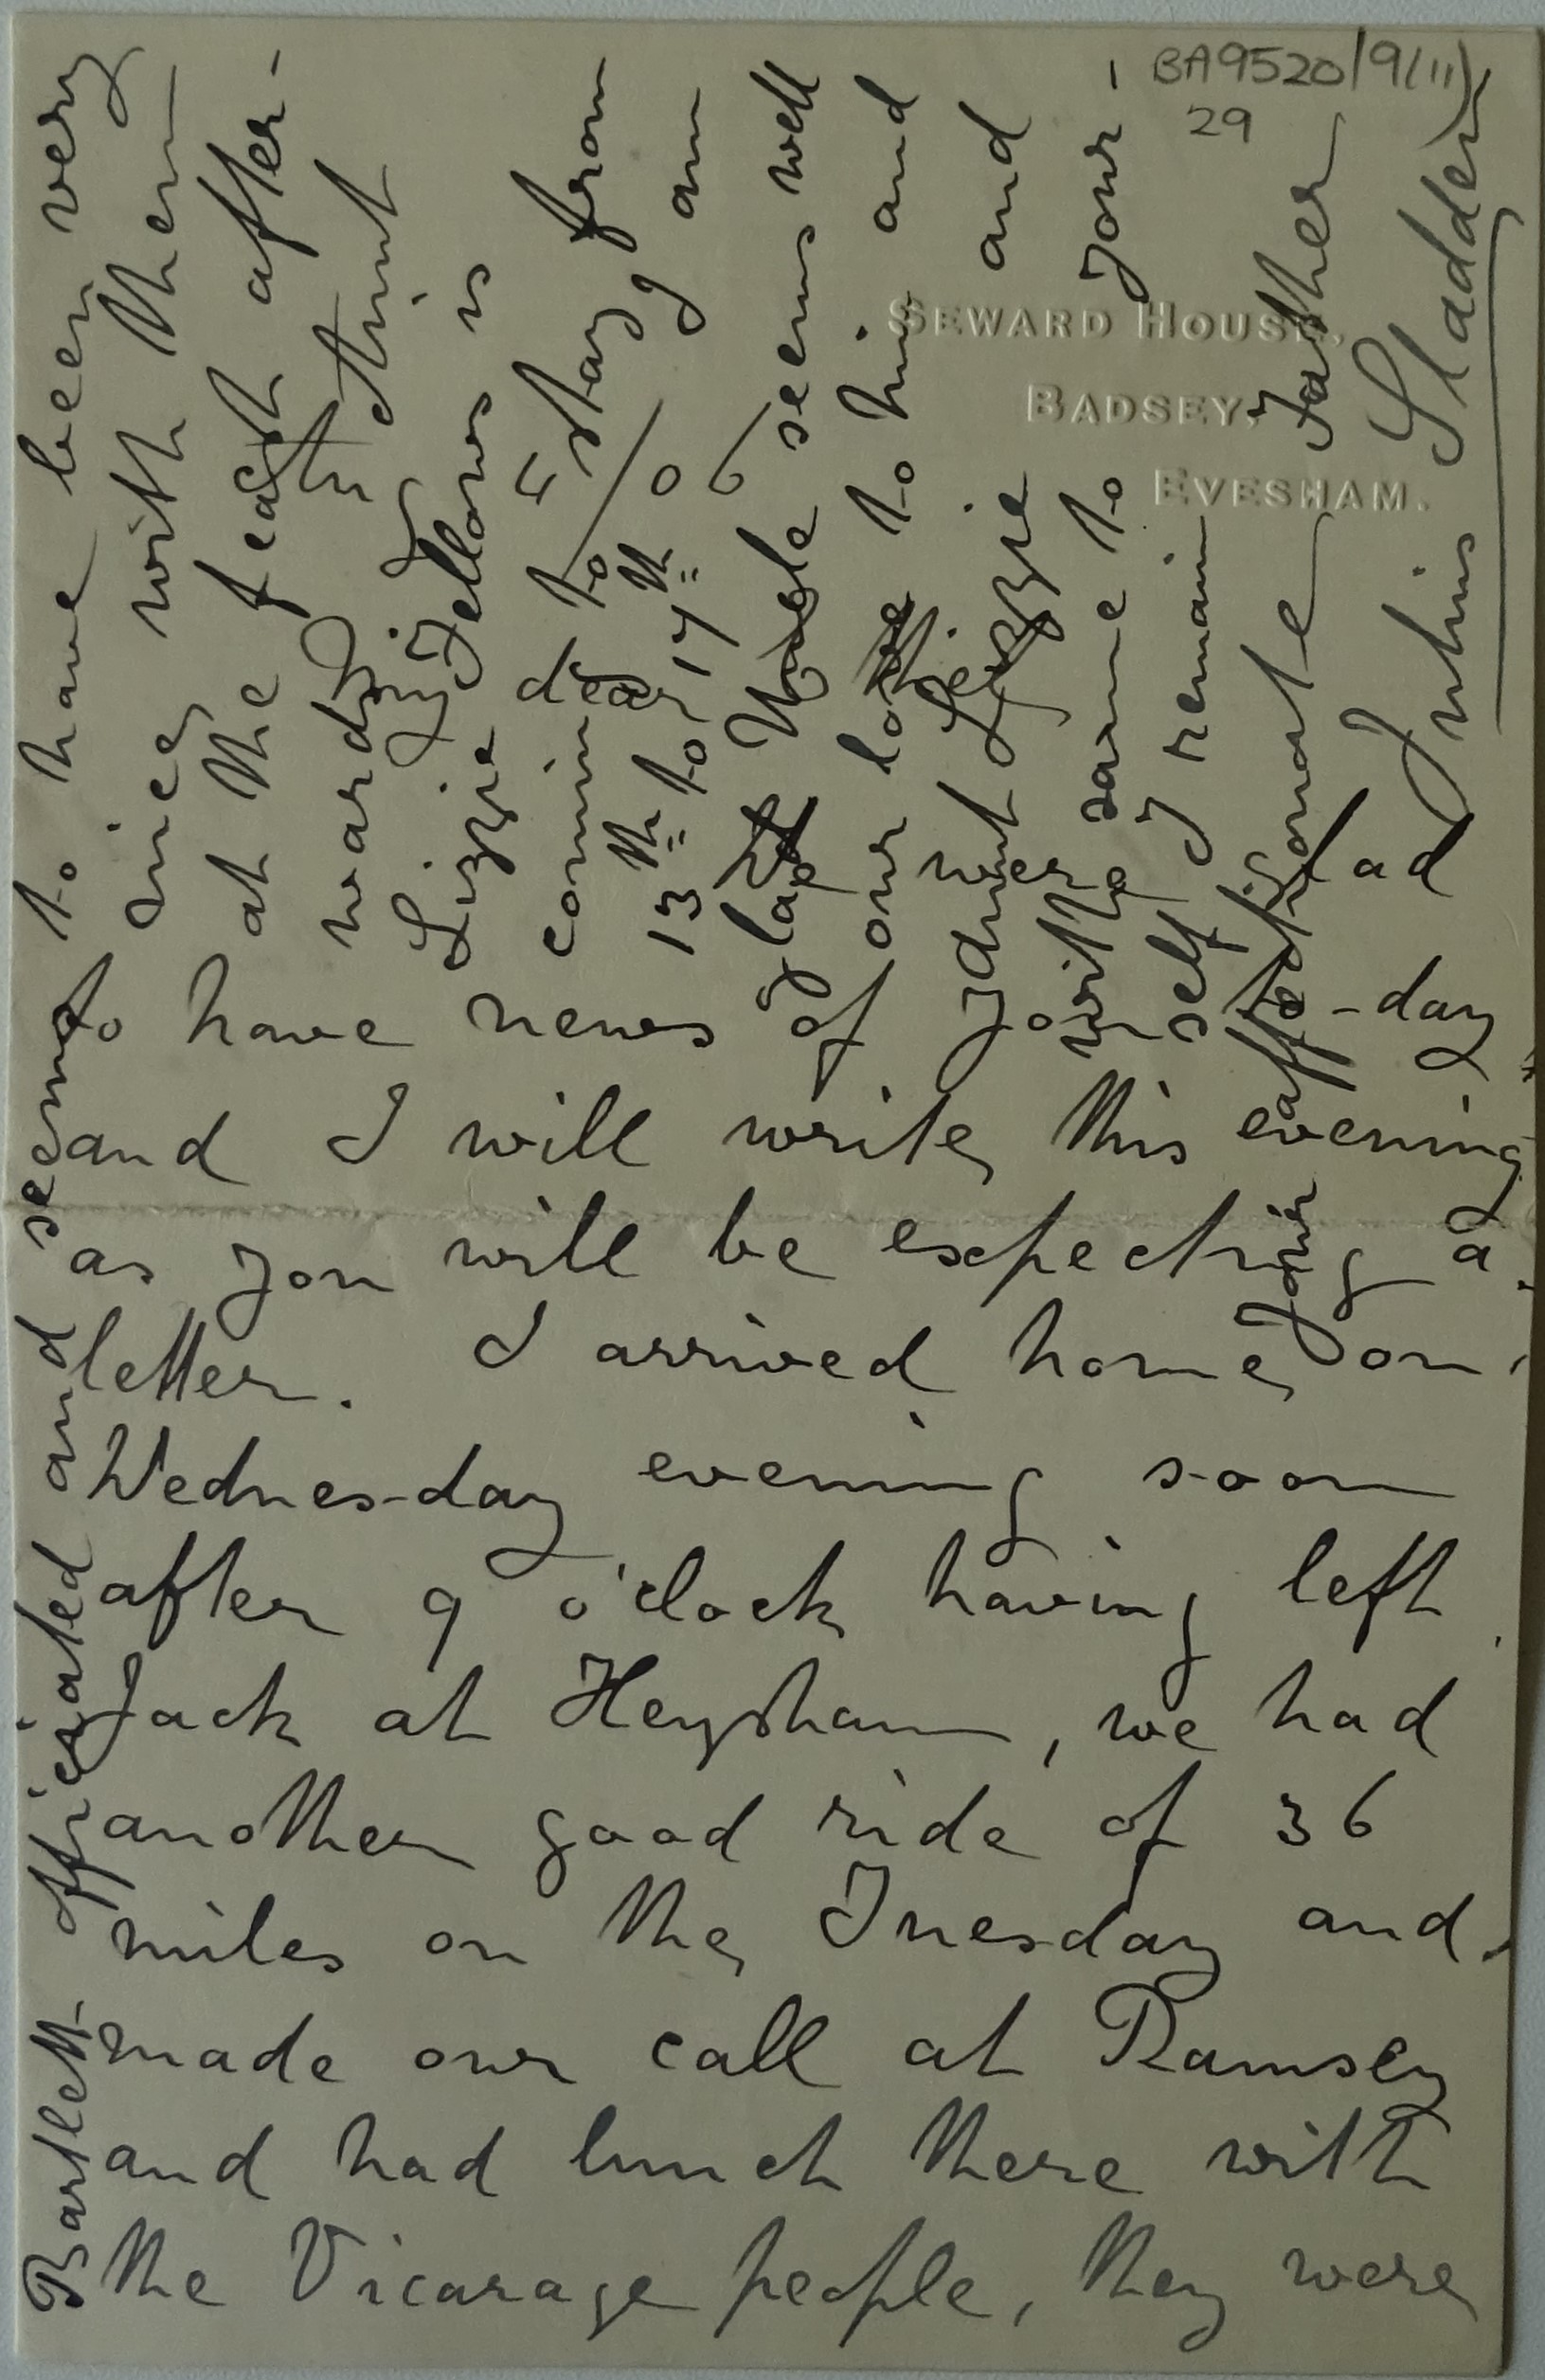 BA9520/9(11)
29
SEWARD HOUSE,
BADSEY,
EVESHAM.
glad
to have news of you to-day
and I will write this evening
as you will be expecting a
letter. I arrived home on
Wednesday evening soon
after 9 o'clock having left
Jack at Heysham, we had
another good ride of 36
miles on the Tuesday and
made our call at Ramsey
and had lunch there with
the Vicarage people, they were
Bartlett officiated and seems to have been very
nice with them
at the feast after-
wards. Aunt
Lizzie Fellows is
coming to stay from
13th to 17th I am
glad Uncle seems well
our love to him and
Aunt Lizzie and
with the same to your-
self I remain
Your affectionate Father
Julius Sladden